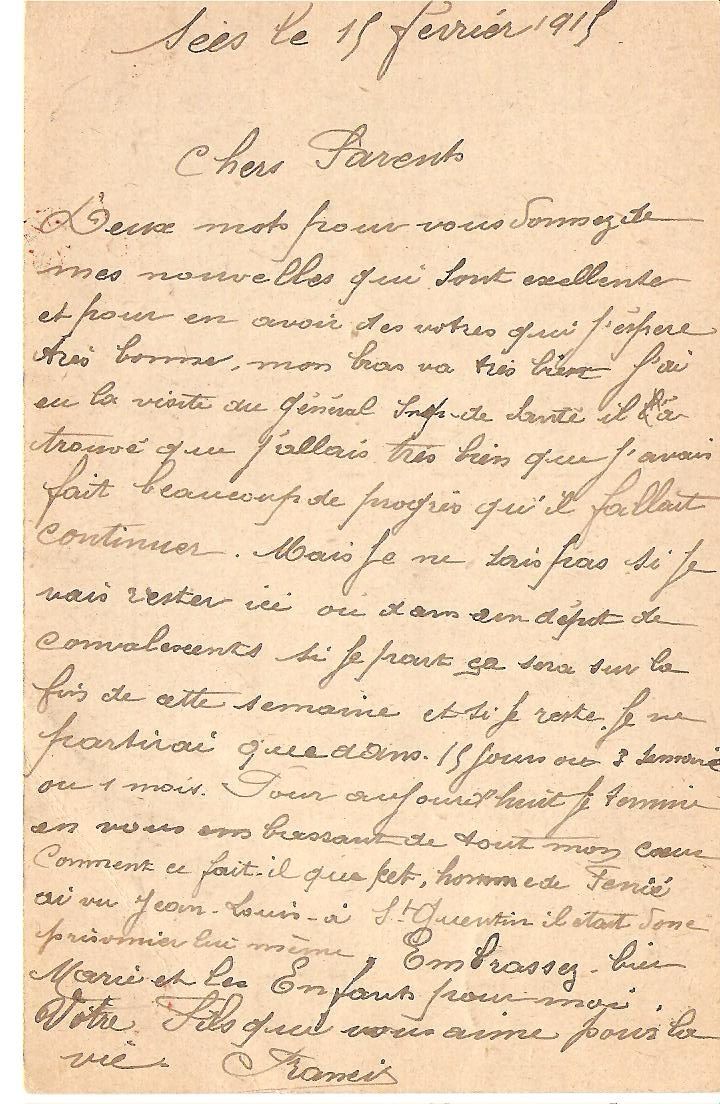 Sées le 15 février 1915
Chers Parents
Deux mots pour vous donnez de
mes nouvelles qui sont exellente
et pour en avoir des votres qui j'éspere
très bonne, mon bras va très bien J'ai
eu la visite du Général Insp. de Santé il a
trouvé que j'allais très bien que j'avais
fait beaucoup de progrés qu'il fallait
continuer. Mais je ne sais pas si je
vais rester ici ou dans un dépot de
convalescents si je part ça sera sur la
fin de cette semaine et si je reste je ne
partirai que dans 15 jours ou 3 semaine
ou 1 mois. Pour aujourd'huit je termine
en vous embrassant de tout mon cœur
Comment ce fait-il que cet homme de
ai vu Jean-Louis à St Quentin il était donc
prisonnier lui même. Embrassez-bien
Marie et les Enfants pour moi.
Votre Fils qui vous aime pour la
vie. Francis